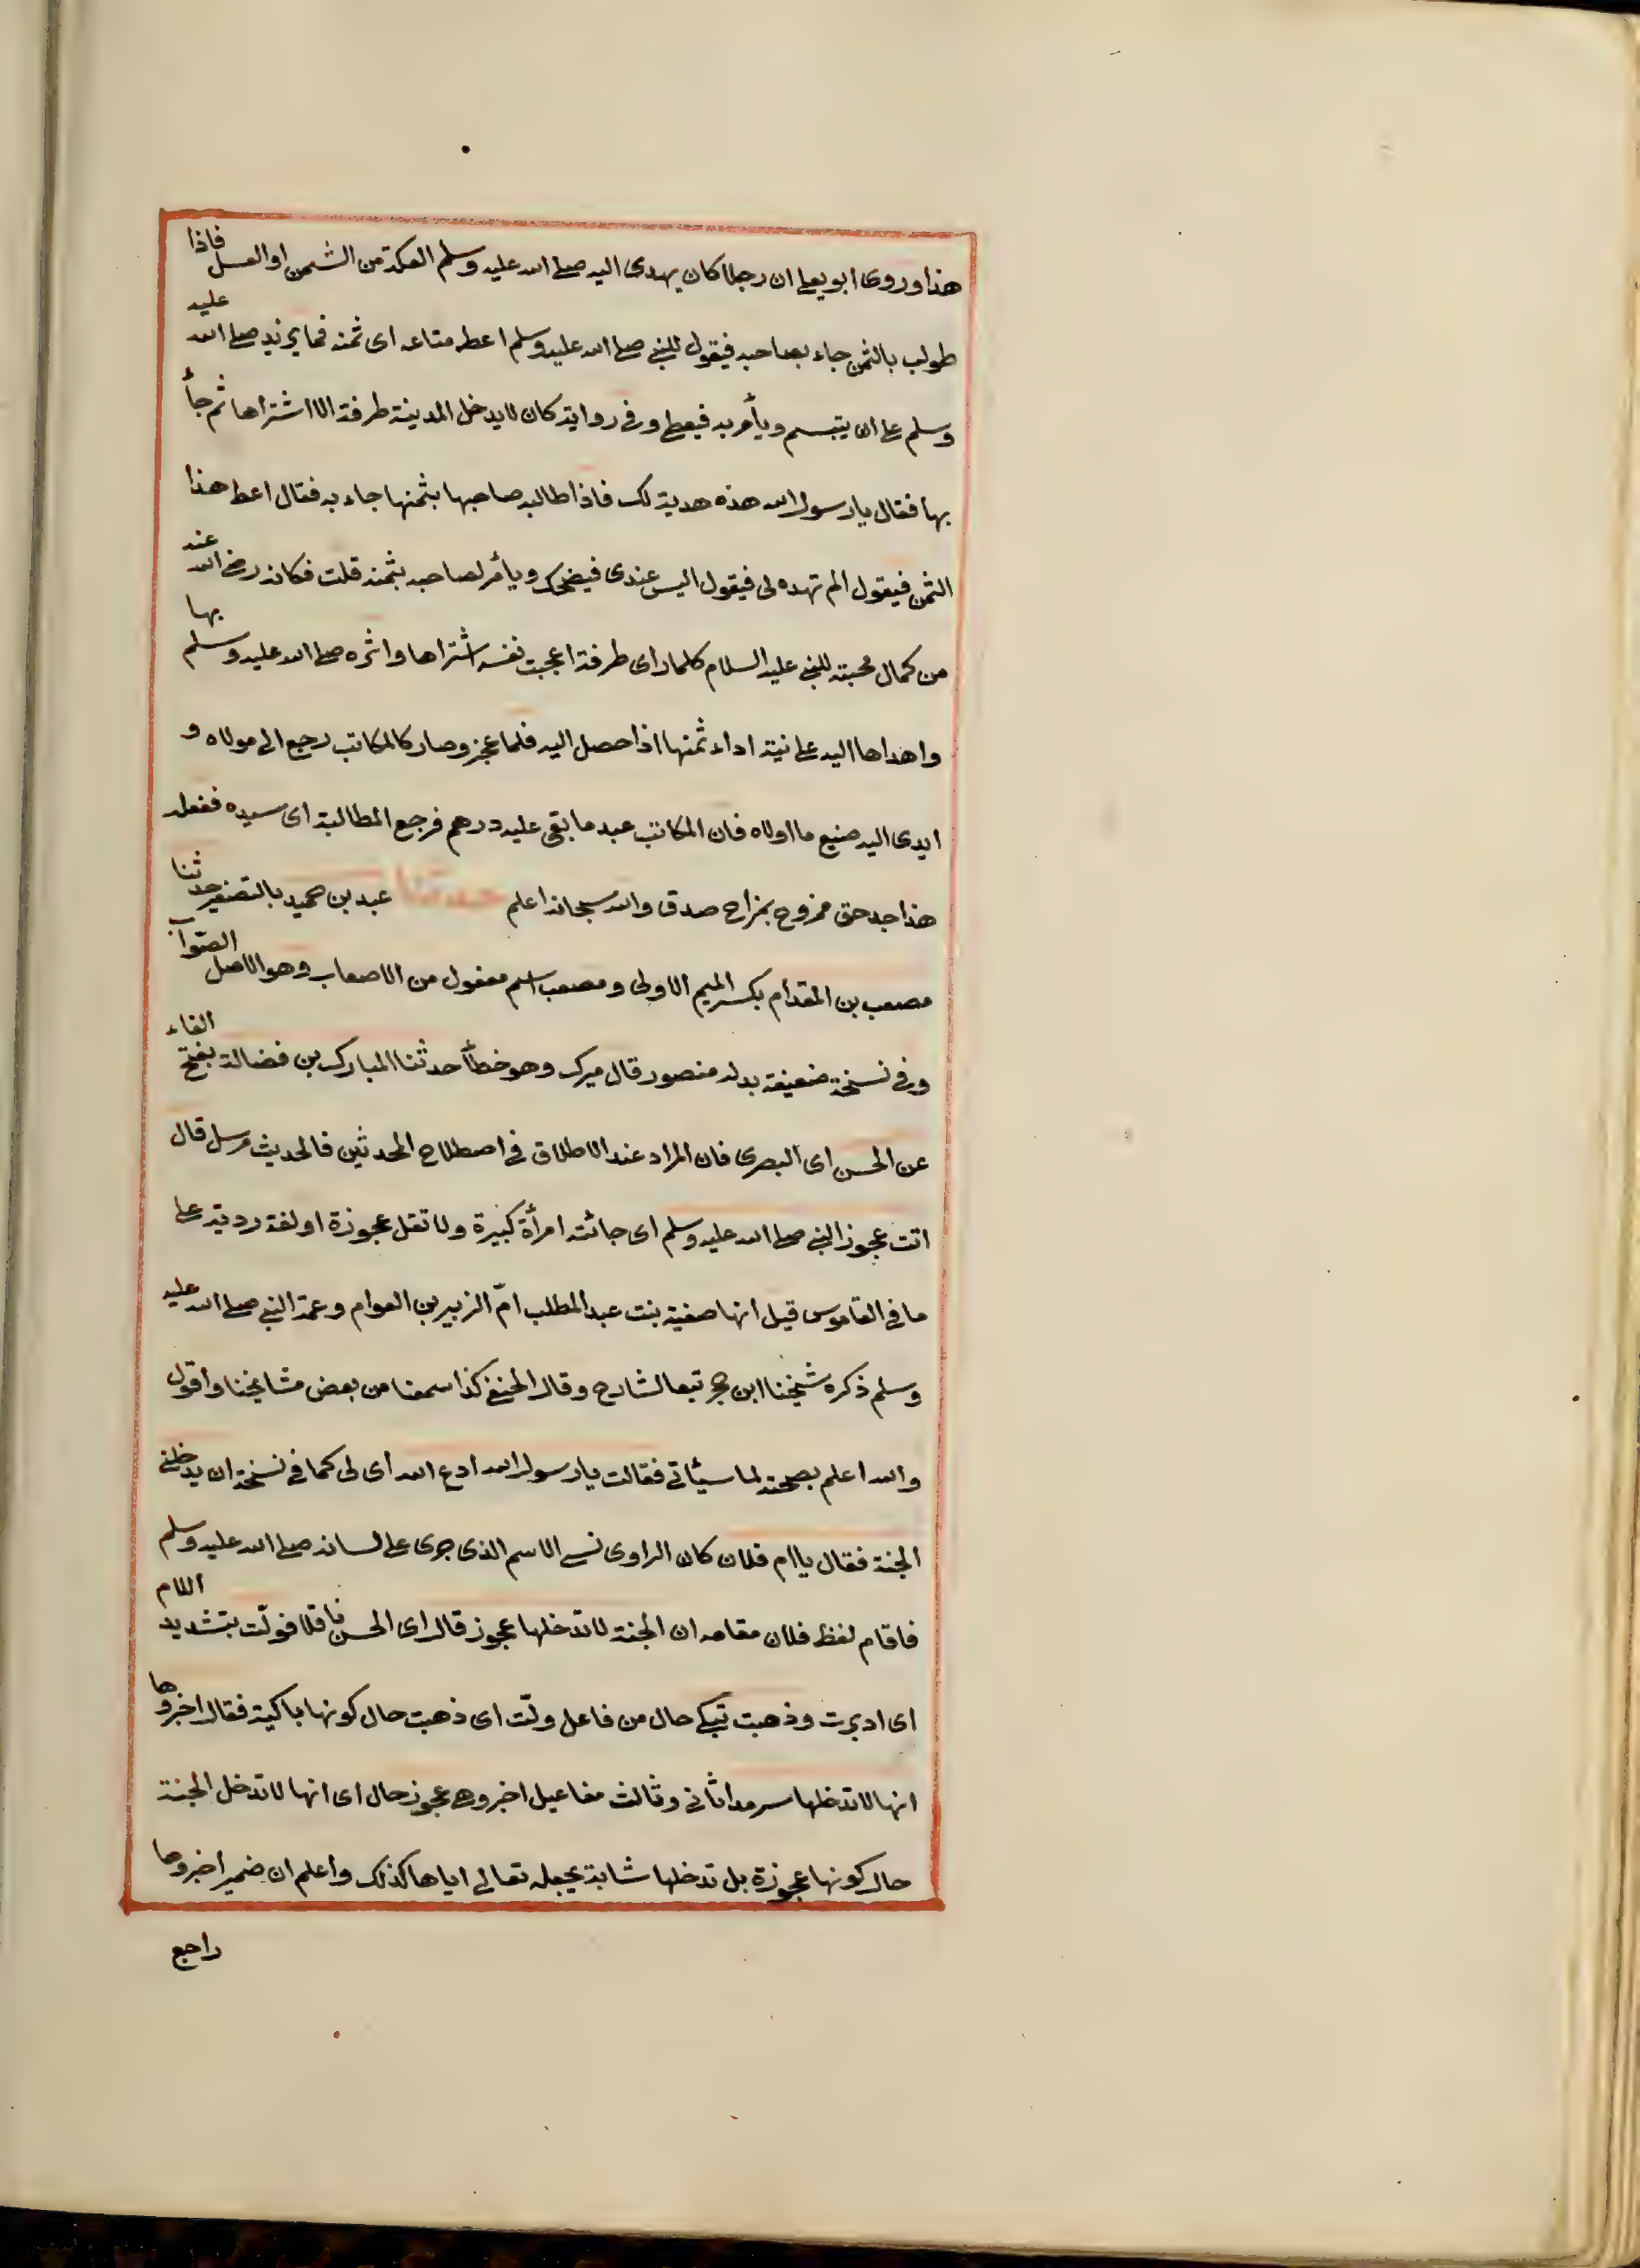 هذا وروى ابو يعلى ان رجلا كان يهدى اليه صلى الله عليه وسلم العكة من الشمن او العسل فاذا
طولب بالثمن جاء بصاحبه فيقول للنبي صلى الله عليه وسلم اعطه متاعه اى ثمنه فما يزيد صلى الله عليه
وسلم على ان يتبسم ويأمر به فيعطى وفى رواية كان لا يدخل المدينة طرفة الا اشتراها ثم جأ
بها فقال يا رسول الله هذه هدية لك فاذا طالبه صاحبها بثمنها جاء به فقال اعط هذا
الثمن فيقول الم تهده لى فيقول اليس عندى فيضحك ويأمر لصاحبه بثمنه قلت فكانه رضى الله عنه
من كمال محبته للنبي عليه السلام كلما راى طرفة اعجبت نفسه اشتراها واثره صلى الله عليه وسلم بها
واهداها اليه على نية اداء ثمنها اذا حصل اليه فلما عجز وصار كالمكاتب رجع الى مولاه و
ايدى اليه صنيع ما اولاه فان المكاتب عبد ما بقى عليه درهم فرجع المطالبة اى سيده ففعله
هذا جد حق ممزوج بمزاح صدق والله سبحانه اعلم حدثنا عبد بن حميد بالتصغير حدثنا
مصعب بن المقدام بكسر الميم الاولى ومصعب اسم مفعول من الاصعاب وهو الاصل الصواب
وفى نسخة ضعيفة بدله منصور قال ميرك وهو خطأ حدثنا المبارك بن فضالة بفتح الفاء
عن الحسن اى البصرى فان المراد عند الاطلاق فى اصطلاح المحدثين فالحديث مرسل قال
اتت عجوز النبي صلى الله عليه وسلم اى جائته امرأة كبيرة ولا تقل عجوزة او لغة ردية على
ما فى القاموس قيل انها صفية بنت عبد المطلب امّ الزبير بن العوام وعمة النبي صلى الله عليه
وسلم ذكره شيخنا ابن حجر تبعا لشارح وقال الحنفى كذا سمعنا من بعض مشايخنا واقول
والله اعلم بصحته لما سيأتى فقالت يا رسول الله ادع الله اى لى كما فى نسخة ان يدخلنى
الجنة فقال يا ام فلان كان الراوى نسى الاسم الذى جرى على لسانه صلى الله عليه وسلم
فاقام لفظ فلان مقامه ان الجنة لا تدخلها عجوز قال اى الحسن ناقلا فولّت بتشديد اللام
اى ادبرت وذهبت تبكى حال من فاعل ولّت اى ذهبت حال كونها باكية فقال اخبروها
انها لا تدخلها سرمدا ثانى وثالث مفاعيل اخبروهى عجوز حال اى انها لا تدخل الجنة
حال كونها عجوزة بل تدخلها شابة يجعله تعالى اياها كذلك واعلم ان ضمير اخبروها
راجع